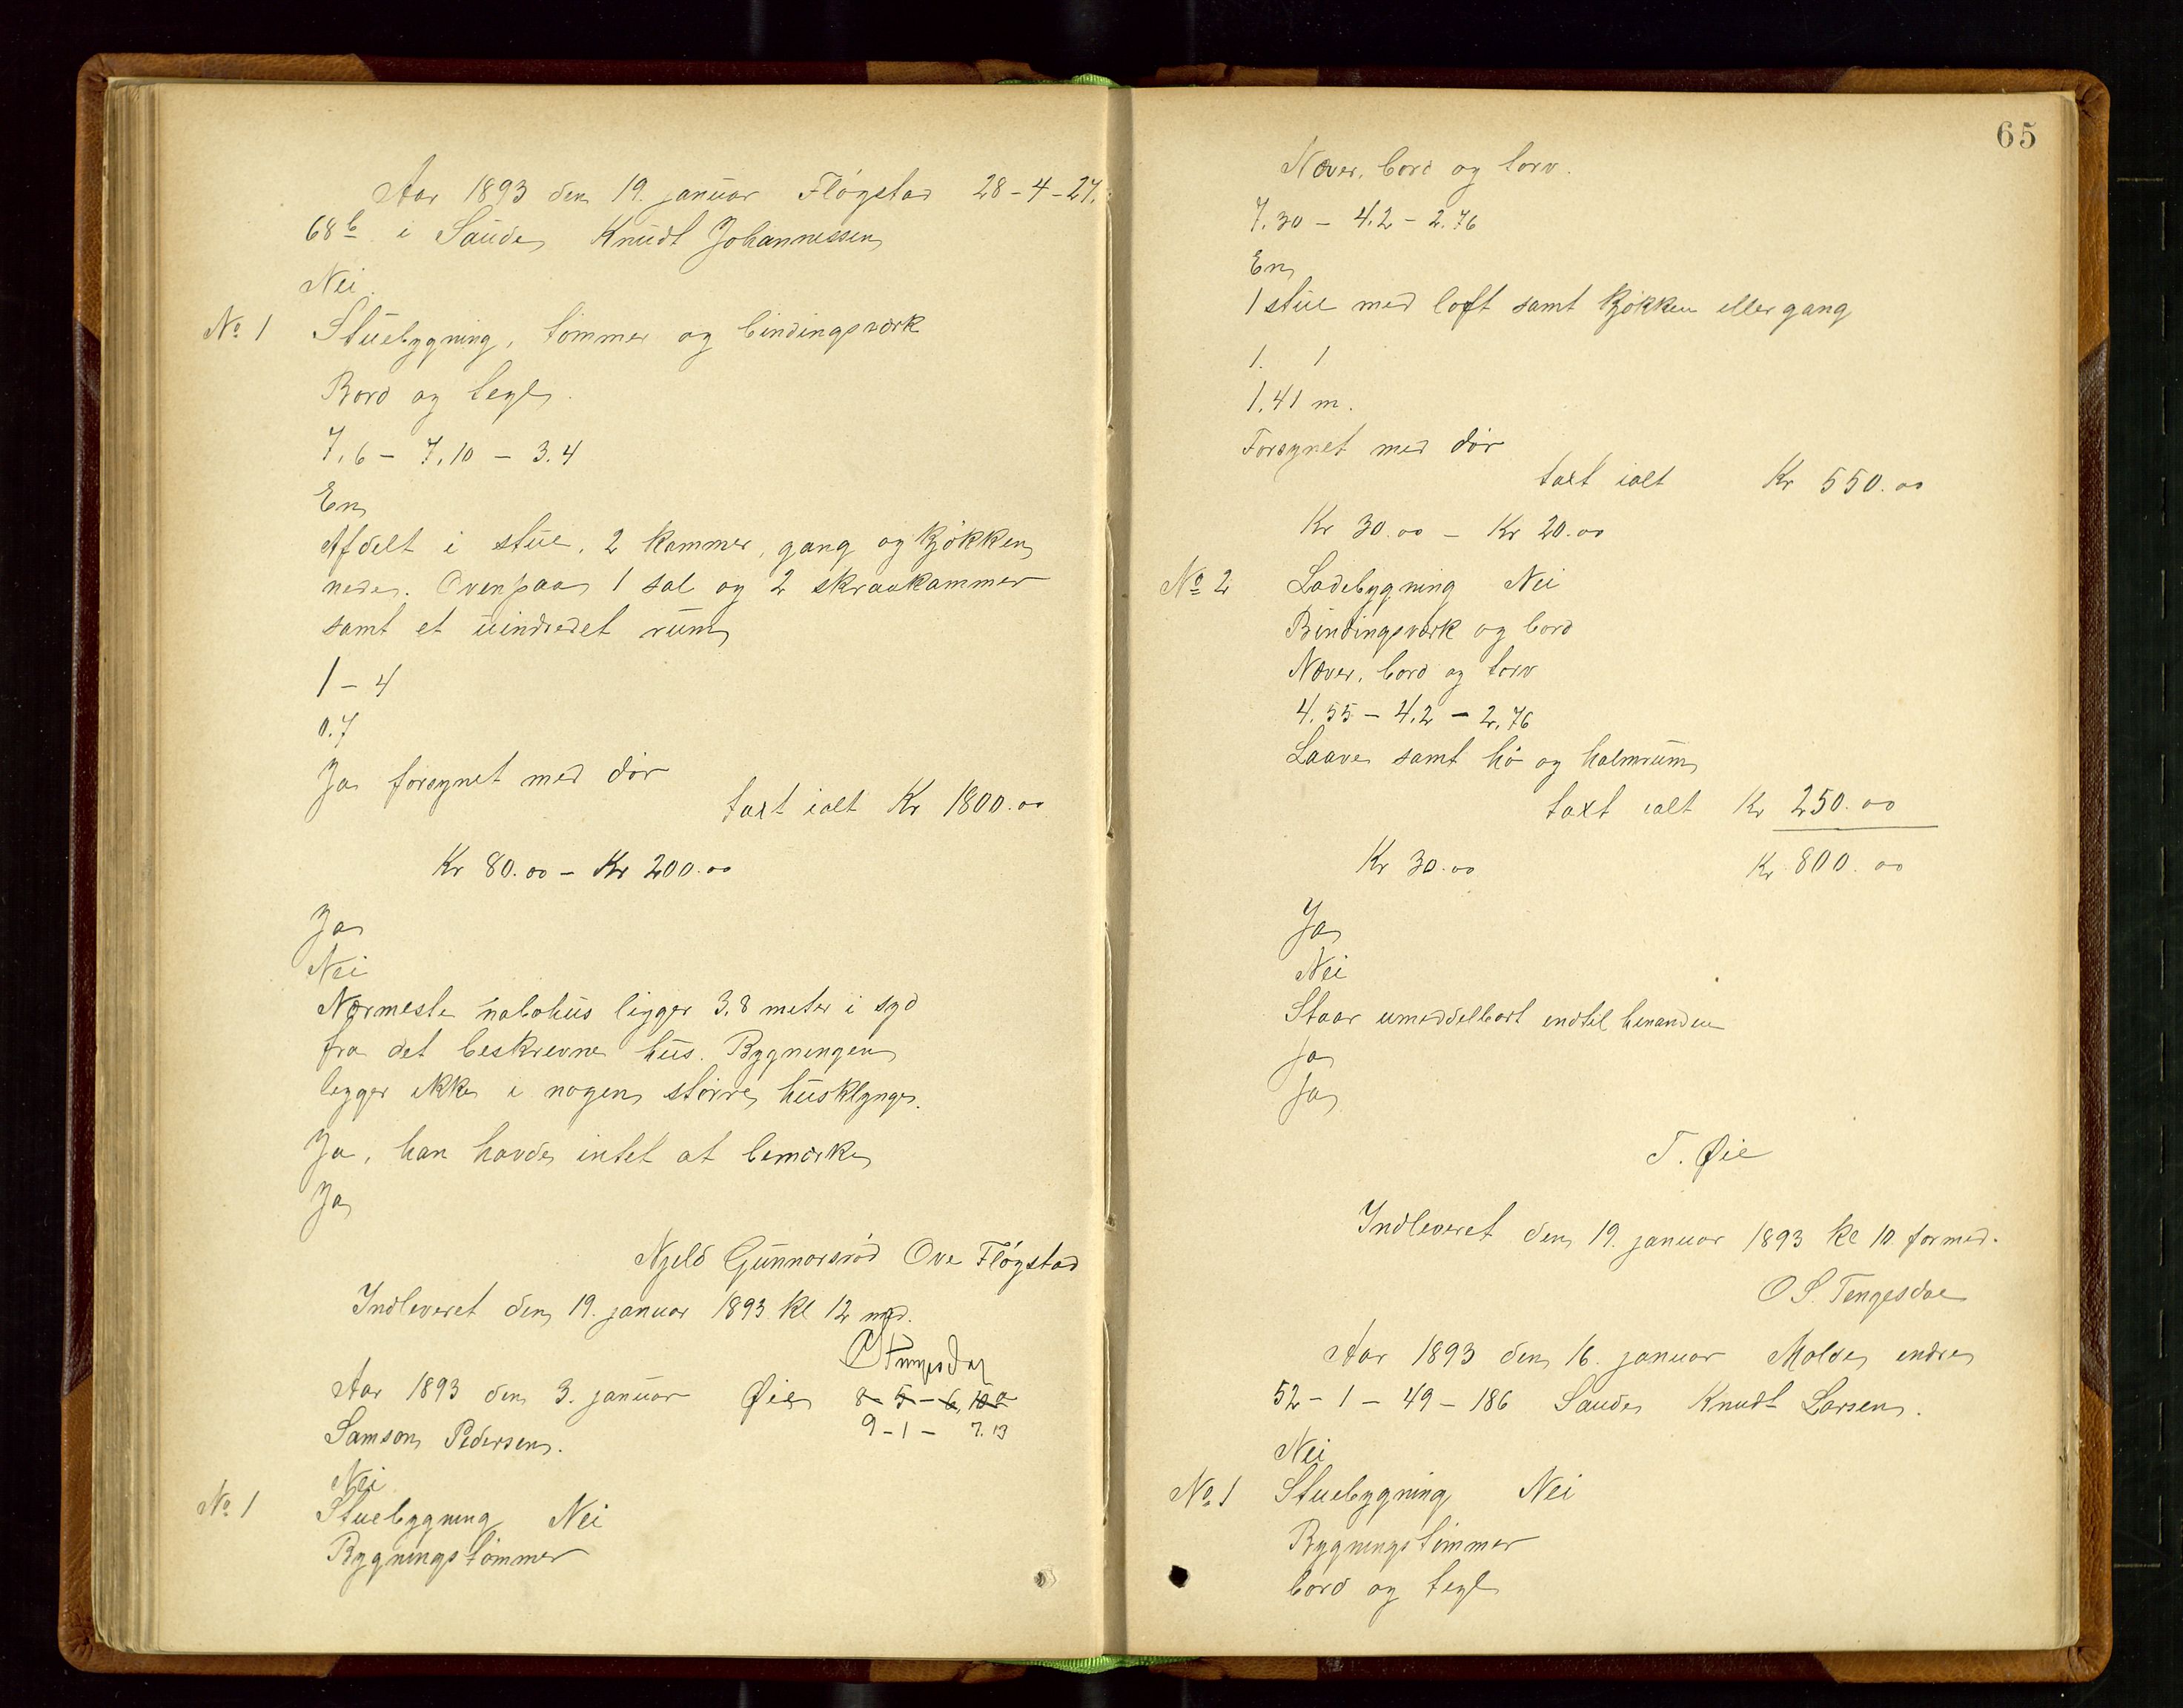 Aar 1893 den 19. januar Fløgstad 28-4-27.
68 b i Saude Knudt Johannessen
Nei.
No 1 Stuebygning, tømmer og bindingsværk
Bord og tegl.
7.6 - 7.10 - 3.4
En
Afdelt i stue, 2 kammer, gang og kjøkken
nede. Ovenpaa 1 sal og 2 skraakammer
samt et uindredet rum
1 - 4
0.7
Ja forsynet med dør
taxt ialt Kr 1800.00
Kr 80.00 - Kr 200.00
Ja
Nei
Nærmeste nabohus ligger 3,8 meter i syd
fra det beskrevne hus. Bygningen
ligger ikke i nogen større husklynge.
Ja, han havde intet at bemærke
Ja
Njeld Gunnarsrød Ove Fløgstad
Indleveret den 19. januar 1893 kl 12 md.
OSTengesdal
Aar 1893 den 3. januar Øie 8-5-6,
9-1- 7.13
Samson Pedersen.
Nei
No 1 Stuebygning Nei
Bygningstømmer
65
Næver, bord og torv.
7.30 - 4.2 - 2.76
En
1 stue med loft samt kjøkken eller gang
1. 1
1,41 m.
Forsynet med dør
taxt ialt Kr 550.00
Kr 30.00 - Kr 20.00
No 2 Ladebygning Nei
Bindingsværk og bord
Næver, bord og torv
4.55 - 4.2 - 2.76
Laave samt hø og halmrum
taxt ialt Kr 250.00
Kr 30.00 Kr 800.00
Ja
Nei
Staar umiddelbart indtil hinanden
Ja
Ja
T. Øie
Indleveret den 19. januar 1893 kl 10 formed.
O S. Tengesdal
Aar 1893 den 16. januar Molde indre
52 - 1 - 49 - 186 Saude Knudt Larsen.
Nei
No. 1 Stuebygning Nei
Bygningstømmer
bord og tegl